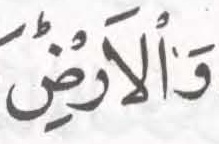 وَٱلْاَرْضِۚ